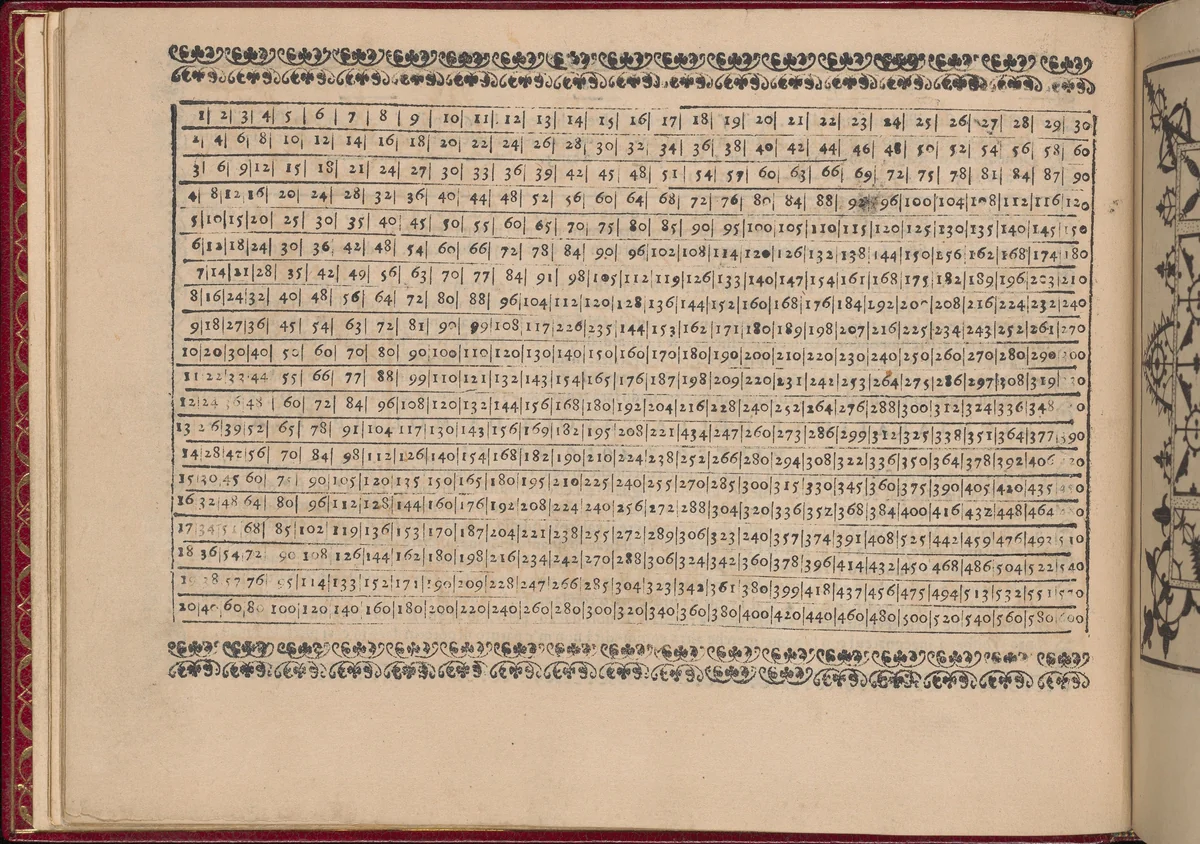 1| 2| 3| 4| 5| 6| 7| 8| 9| 10| 11| 12| 13| 14| 15| 16| 17| 18| 19| 20| 21| 22| 23| 24| 25| 26| 27| 28| 29| 30
2| 4| 6| 8| 10| 12| 14| 16| 18| 20| 22| 24| 26| 28| 30| 32| 34| 36| 38| 40| 42| 44| 46| 48| 50| 52| 54| 56| 58| 60
3| 6| 9|12| 15| 18| 21| 24| 27| 30| 33| 36| 39| 42| 45| 48| 51| 54| 57| 60| 63| 66| 69| 72| 75| 78| 81| 84| 87| 90
4| 8|12|16| 20| 24| 28| 32| 36| 40| 44| 48| 52| 56| 60| 64| 68| 72| 76| 80| 84| 88| 92| 96|100|104|108|112|116|120
5|10|15|20| 25| 30| 35| 40| 45| 50| 55| 60| 65| 70| 75| 80| 85| 90| 95|100|105|110|115|120|125|130|135|140|145|150
6|12|18|24| 30| 36| 42| 48| 54| 60| 66| 72| 78| 84| 90| 96|102|108|114|120|126|132|138|144|150|156|162|168|174|180
7|14|21|28| 35| 42| 49| 56| 63| 70| 77| 84| 91| 98|105|112|119|126|133|140|147|154|161|168|175|182|189|196|203|210
8|16|24|32| 40| 48| 56| 64| 72| 80| 88| 96|104|112|120|128|136|144|152|160|168|176|184|192|200|208|216|224|232|240
9|18|27|36| 45| 54| 63| 72| 81| 90| 99|108|117|226|235|144|153|162|171|180|189|198|207|216|225|234|243|252|261|270
10|20|30|40| 50| 60| 70| 80| 90|100|110|120|130|140|150|160|170|180|190|200|210|220|230|240|250|260|270|280|290|300
11|22|33|44 55| 66| 77| 88| 99|110|121|132|143|154|165|176|187|198|209|220|231|241|253|264|275|286|297|308|319|
12|24|36|48| 60| 72| 84| 96|108|120|132|144|156|168|180|192|204|216|228|240|252|264|276|288|300|312|324|336|348
13 26|39|52| 65| 78| 91|104 117|130|143|156|169|182|195|208|221|434|247|260|273|286|299|312|325|338|351|364|377|390
14|28|42|56| 70| 84| 98|112|126|140|154|168|182|190|210|224|238|252|266|280|294|308|322|336|350|364|378|392|406
15|30|45 60| 75| 90|105|120|135|150|165|180|195|210|225|240|255|270|285|300|315|330|345|360|375|390|405|420|435
16|32|48|64| 80| 96|112|128|144|160|176|192|208|224|240|256|272|288|304|320|336|352|368|384|400|416|432|448|464
17|34|51|68| 85|102|119|136|153|170|187|204|221|238|255|272|289|306|323|240|357|374|391|408|525|442|459|476|492|510
18 36|54|72 90|108|126|144|162|180|198|216|234|242|270|288|306|324|342|360|378|396|414|432|450|468|486|504|522|540
38 57|76| 95|114|133|152|171|190|209|228|247|266|285|304|323|342|361|380|399|418|437|456|475|494|513|532|551|570
20|40|60|80|100|120|140|160|180|200|220|240|260|280|300|320|340|360|380|400|420|440|460|480|500|520|540|560|580|600